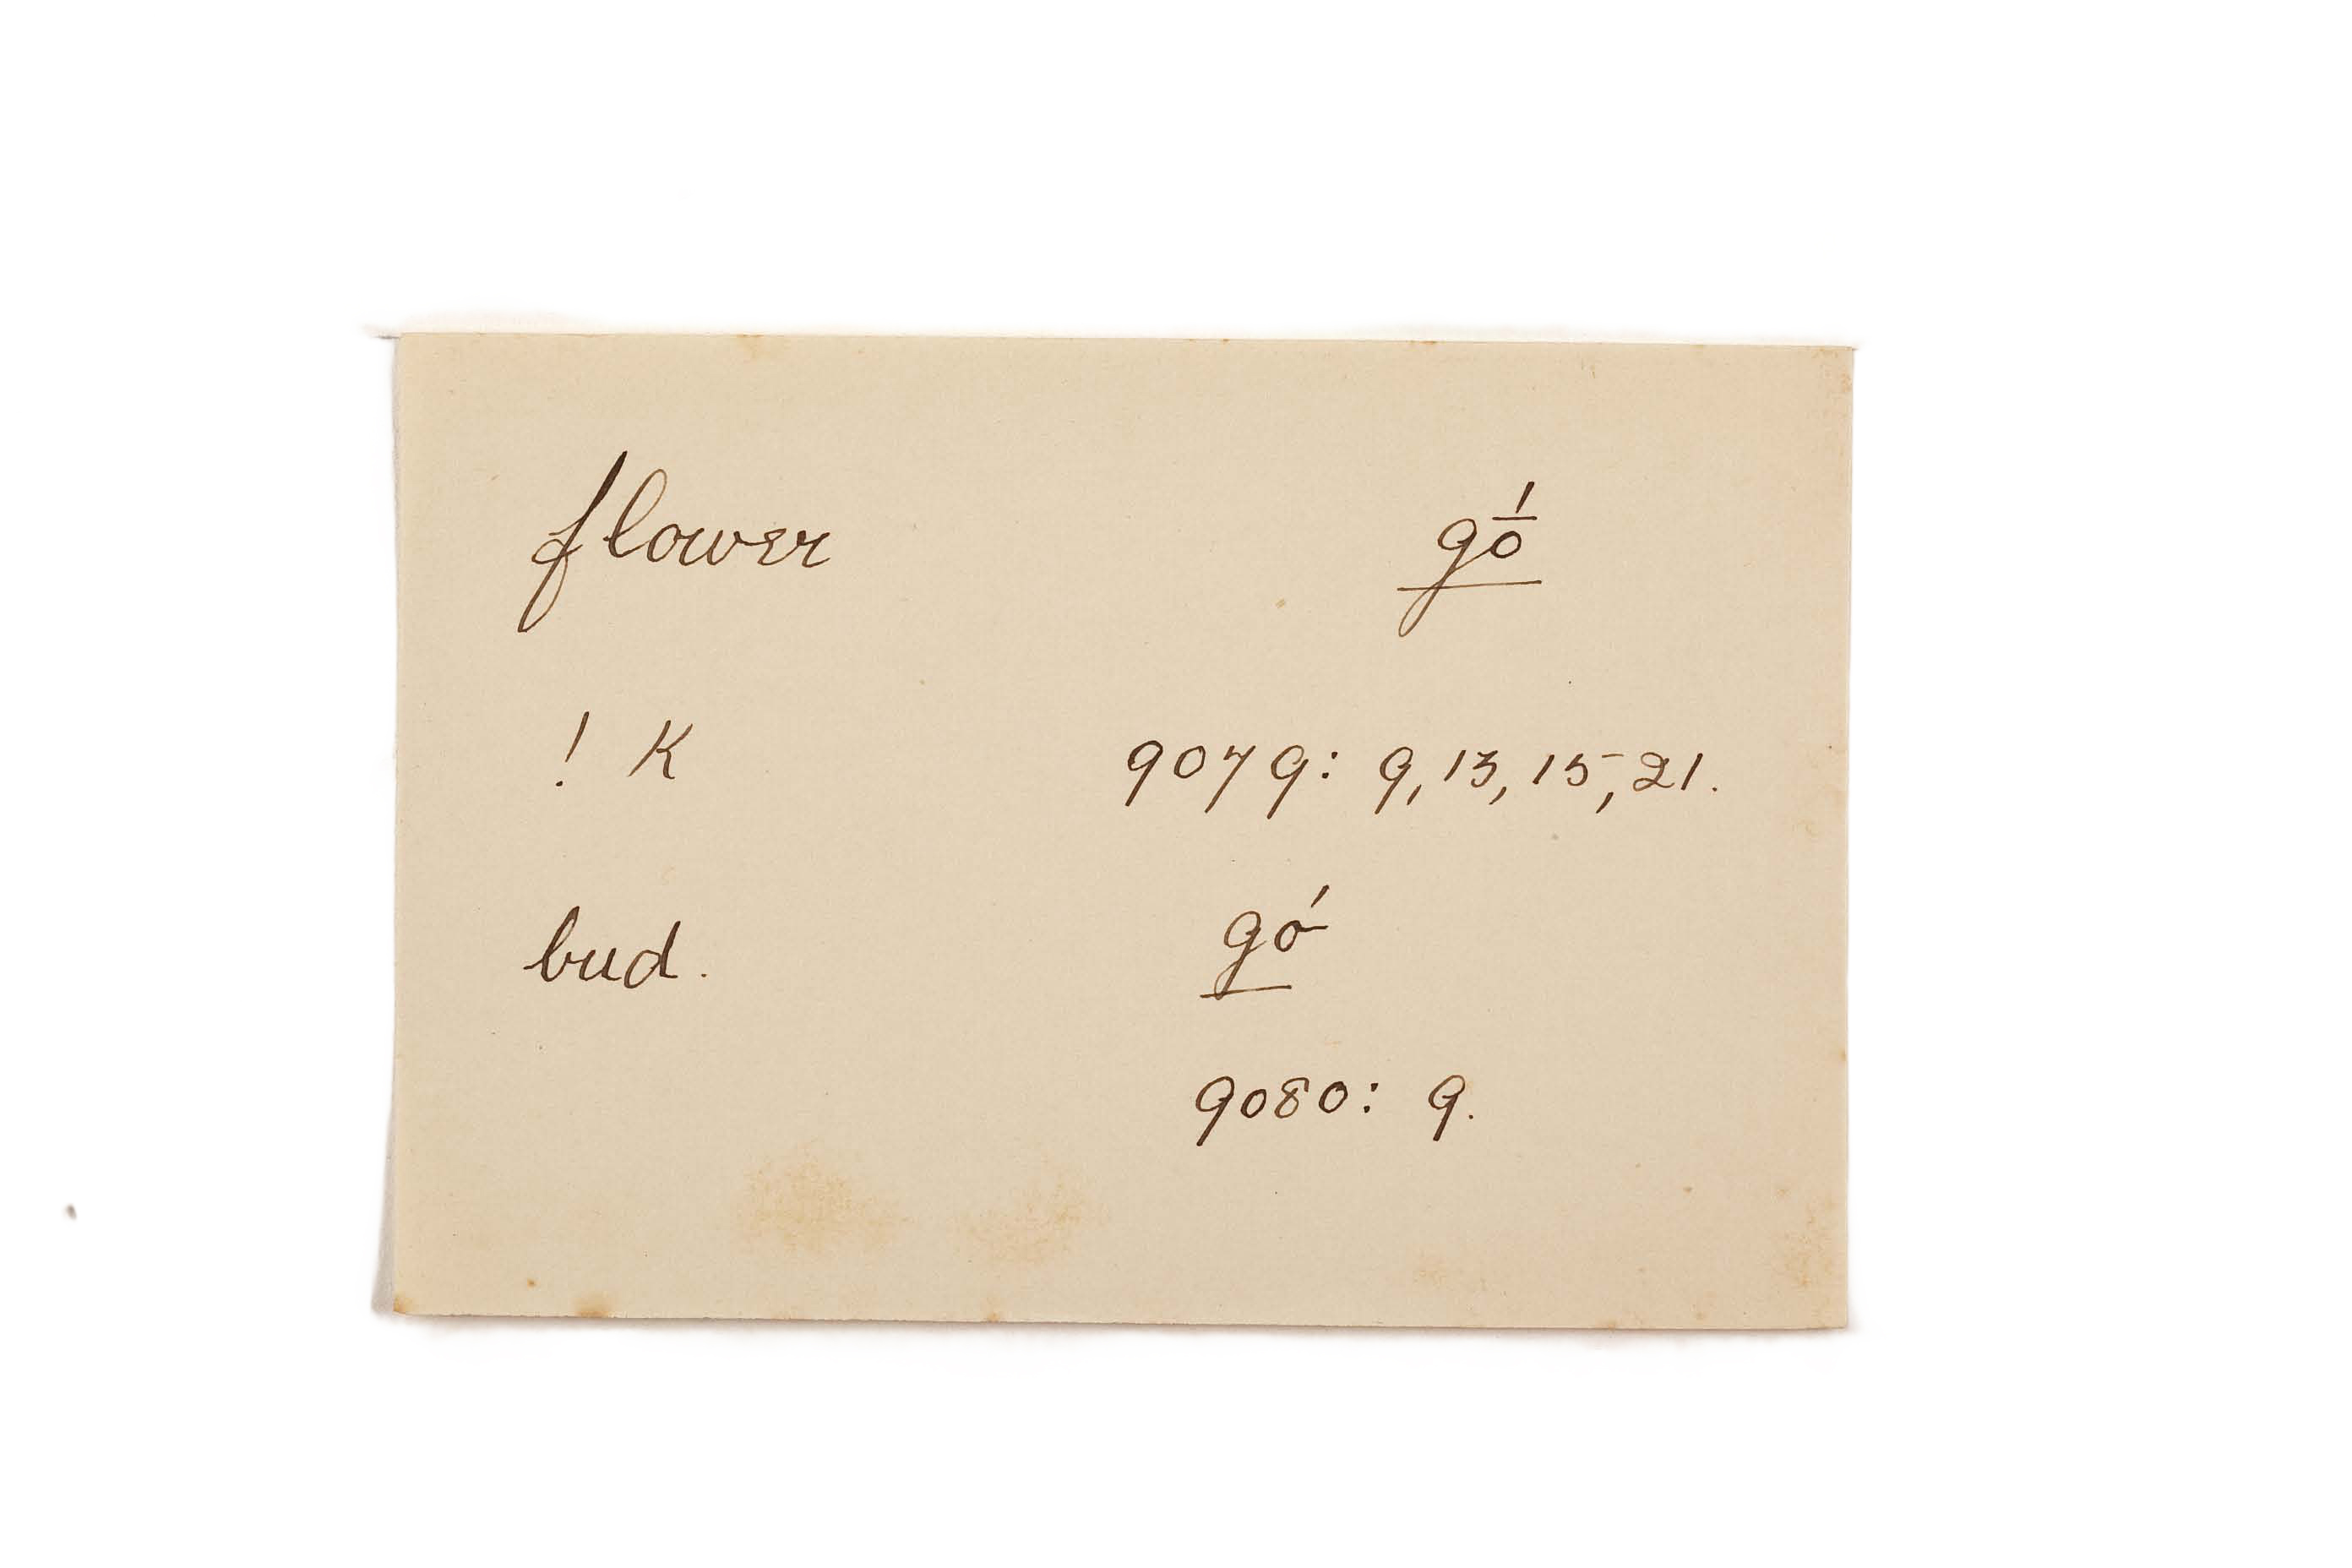 flower gṓ
! K 9079: 9, 13, 15, 21.
bud. gó
9080: 9.